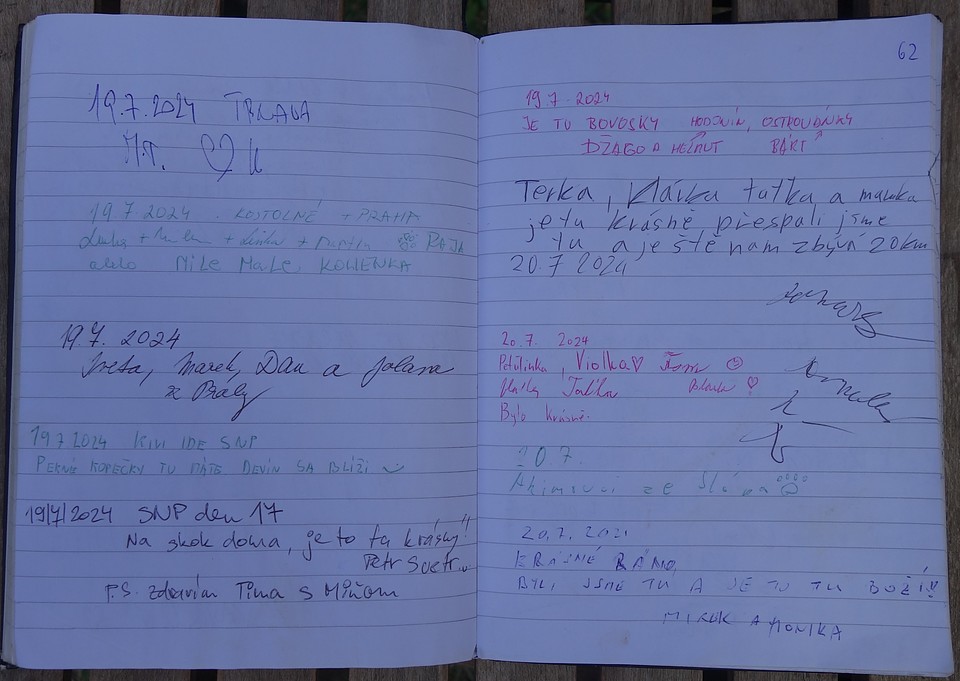 19.7.2024 TRNAVA
M.T. ♡ K
19 7 2024 . KOSTOLNÉ + PRAHA
+ + + Martin RAJA
MILE MALE, KOWENKA
19.7. 2024
Iveta, Marek, Dan a Jolana
z Prahy
19 7 2024 KIVI IDE SNP
PEKNÉ KOPEČKY TU MÁTE. DEVIN SA BLÍŽI
19/7/2024 SNP den 17
Na skok doma, je to ta krásky!!
Petr Svetr
P.S. zdravím Tima s Míňom
62
19 7 2024
JE TU BOVOSKY HODJNÍN, OSTROVÁNKY
DŽAGO A HELMUT BÁRT
Terka, Klárka taťka, a mamka
je tu krásně přespali jsme
tu a ještě nám zbývá 20km
20.7 2024
20.7. 2024
Petulinka, Violka♡ Tom ☺
♡
Bylo krásně.
20.7.
ze
20.7.202
KRÁSNÉ RÁNO,
BYLI JSME TU A JE TO TU BOŽÍ!!
MIREK A MONIKA